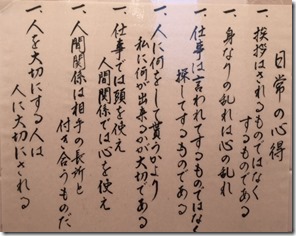 日常の心得
一、挨拶はされるものではなく
するものである
一、身なりの乱れは心の乱れ
一、仕事は言われてするものではなく
探してするものである
一、人に何をして貰うかより
私に何が出来るかが大切である
一、仕事では頭を使え
人間関係では心を使え
一、人間関係は相手の長所と
付き合うものだ
一、人を大切にする人は
人に大切にされる